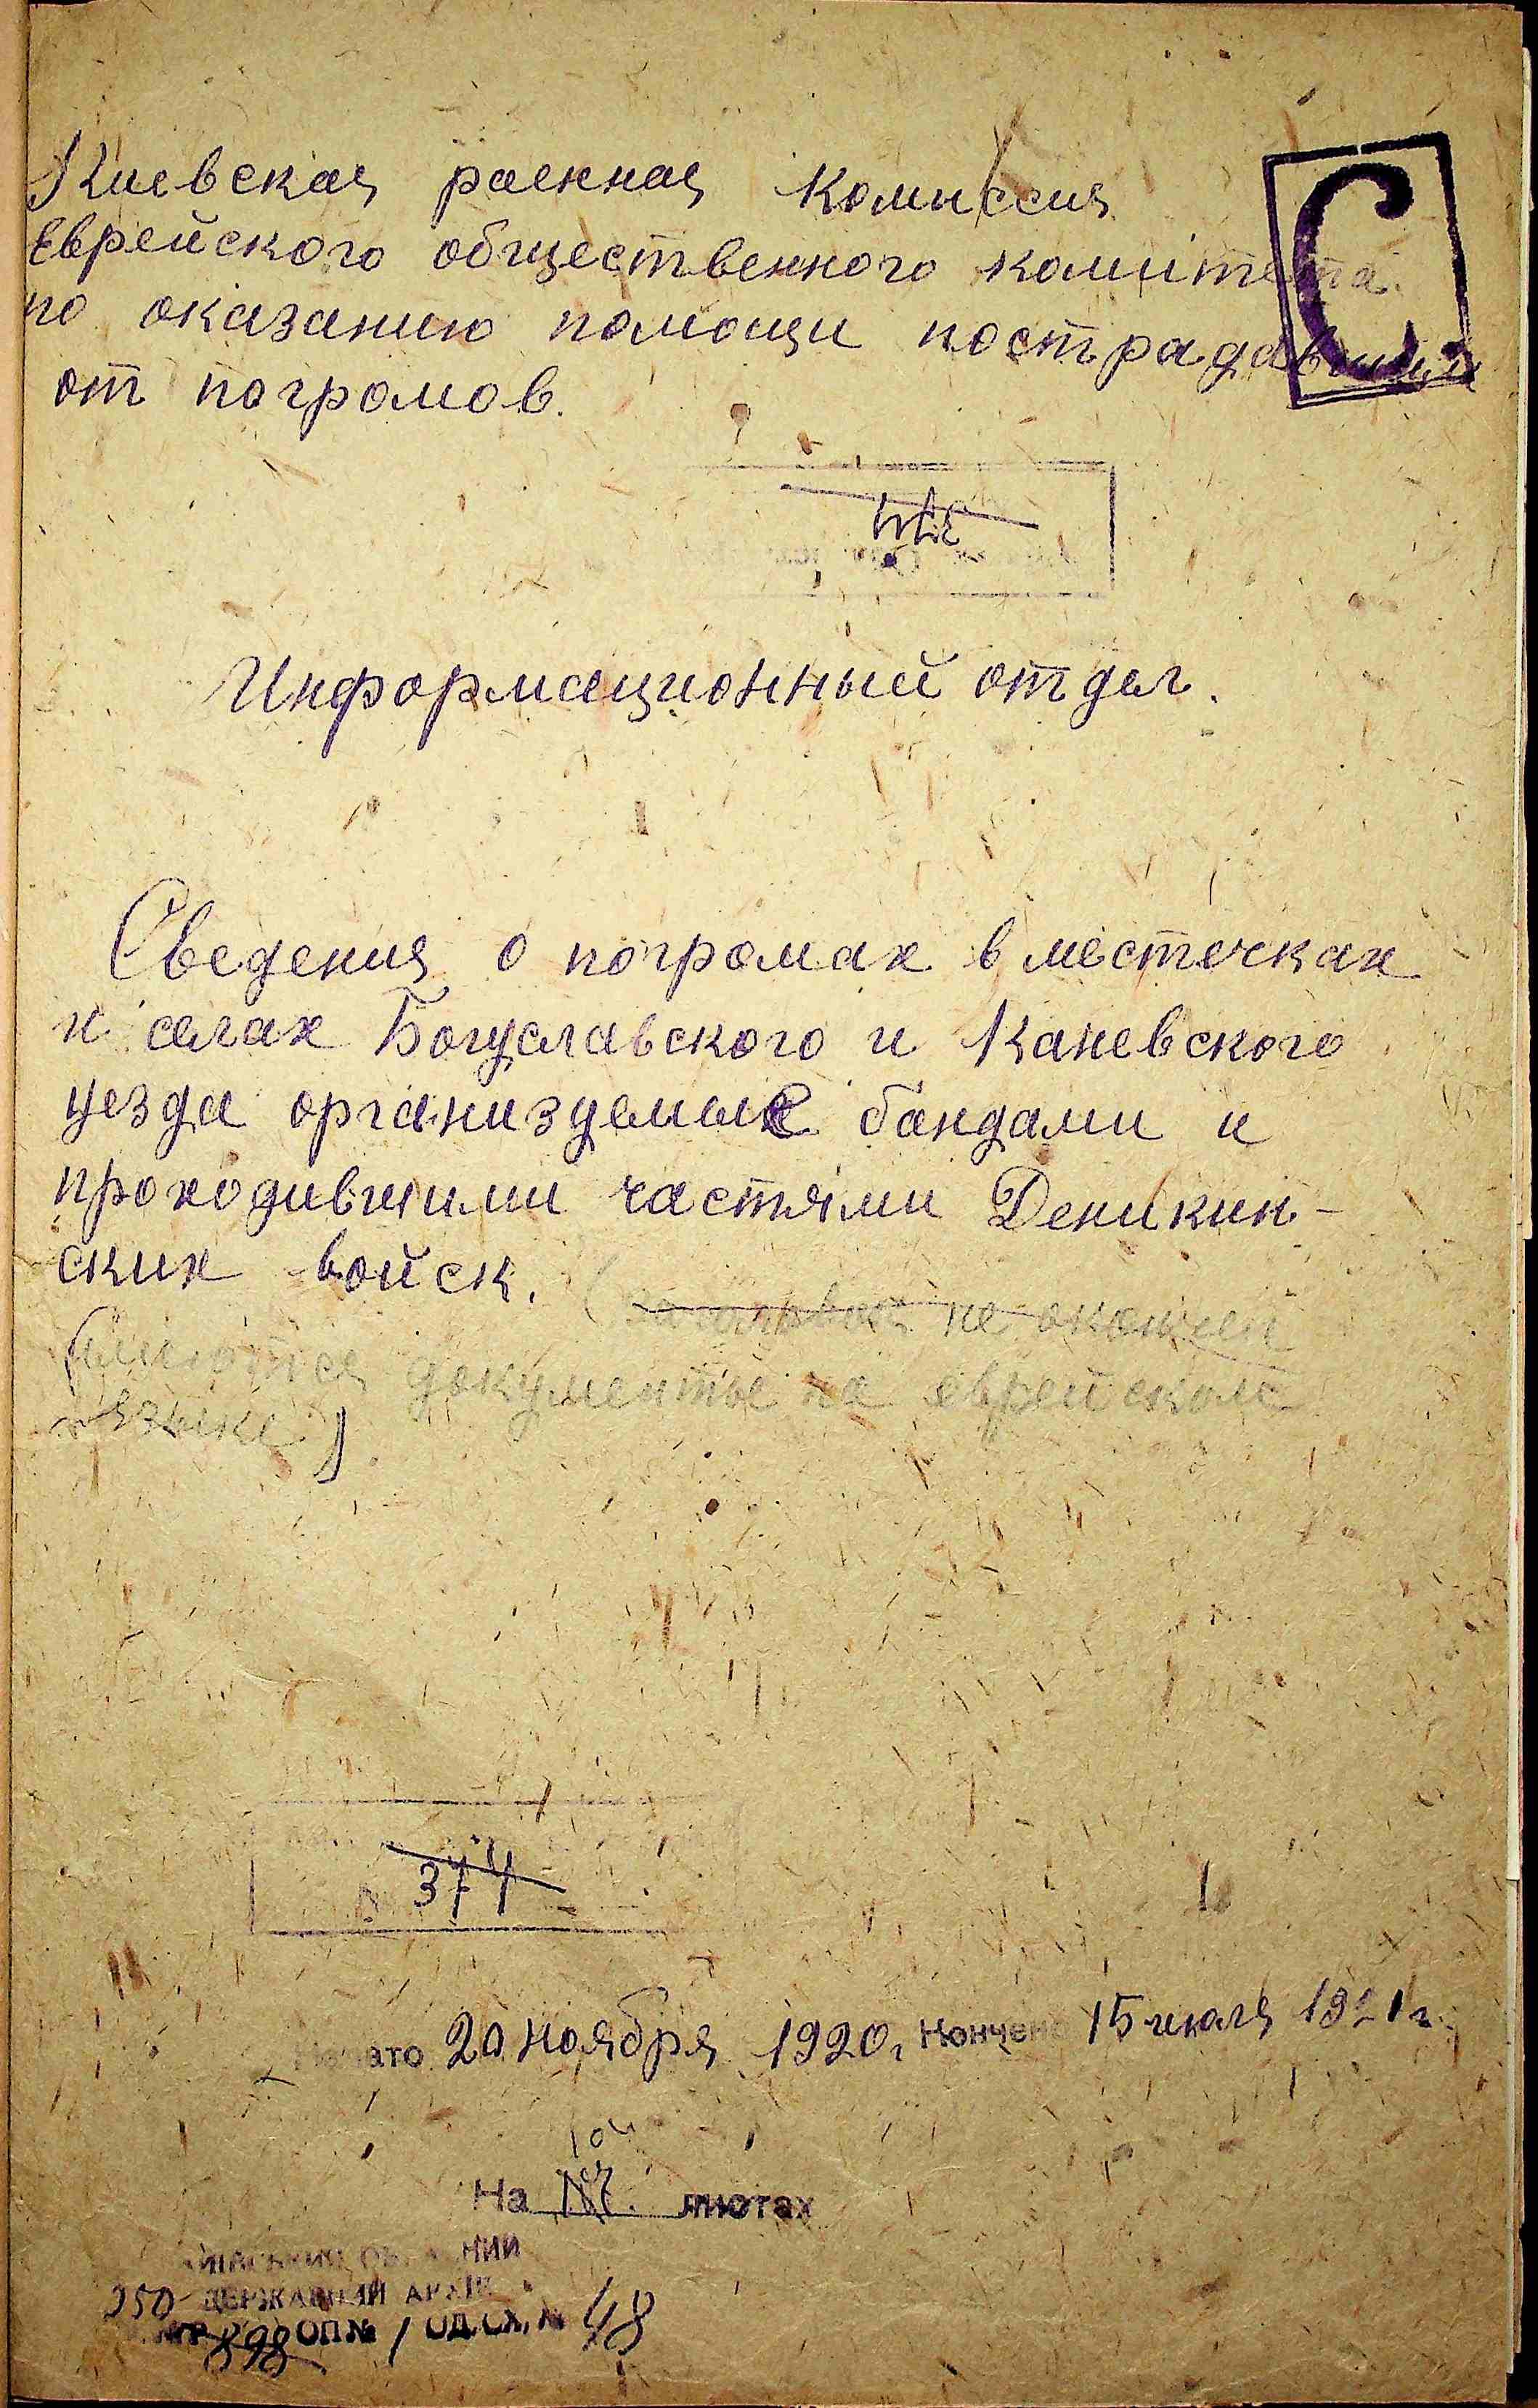 Киевская раенная Комиссия
Еврейского общественного комитета
по оказанию помощи пострадавшим
от погромов.
С
Информационный отдел.
Сведения о погромах в местечках
и селах Богуславского и Каневского
уезда организуемые бандами и
проходившими частями Деникин-
ских войск.
(имеются документы на еврейском
языке)
374
Начато 20 ноября 1920г Кончено 15 июля 1921г.
На листах
ОБЛАСНИЙ
350 ДЕРЖАВНИЙ АРХІВ
898 ОП № 1 ОД.СХ.№ 48